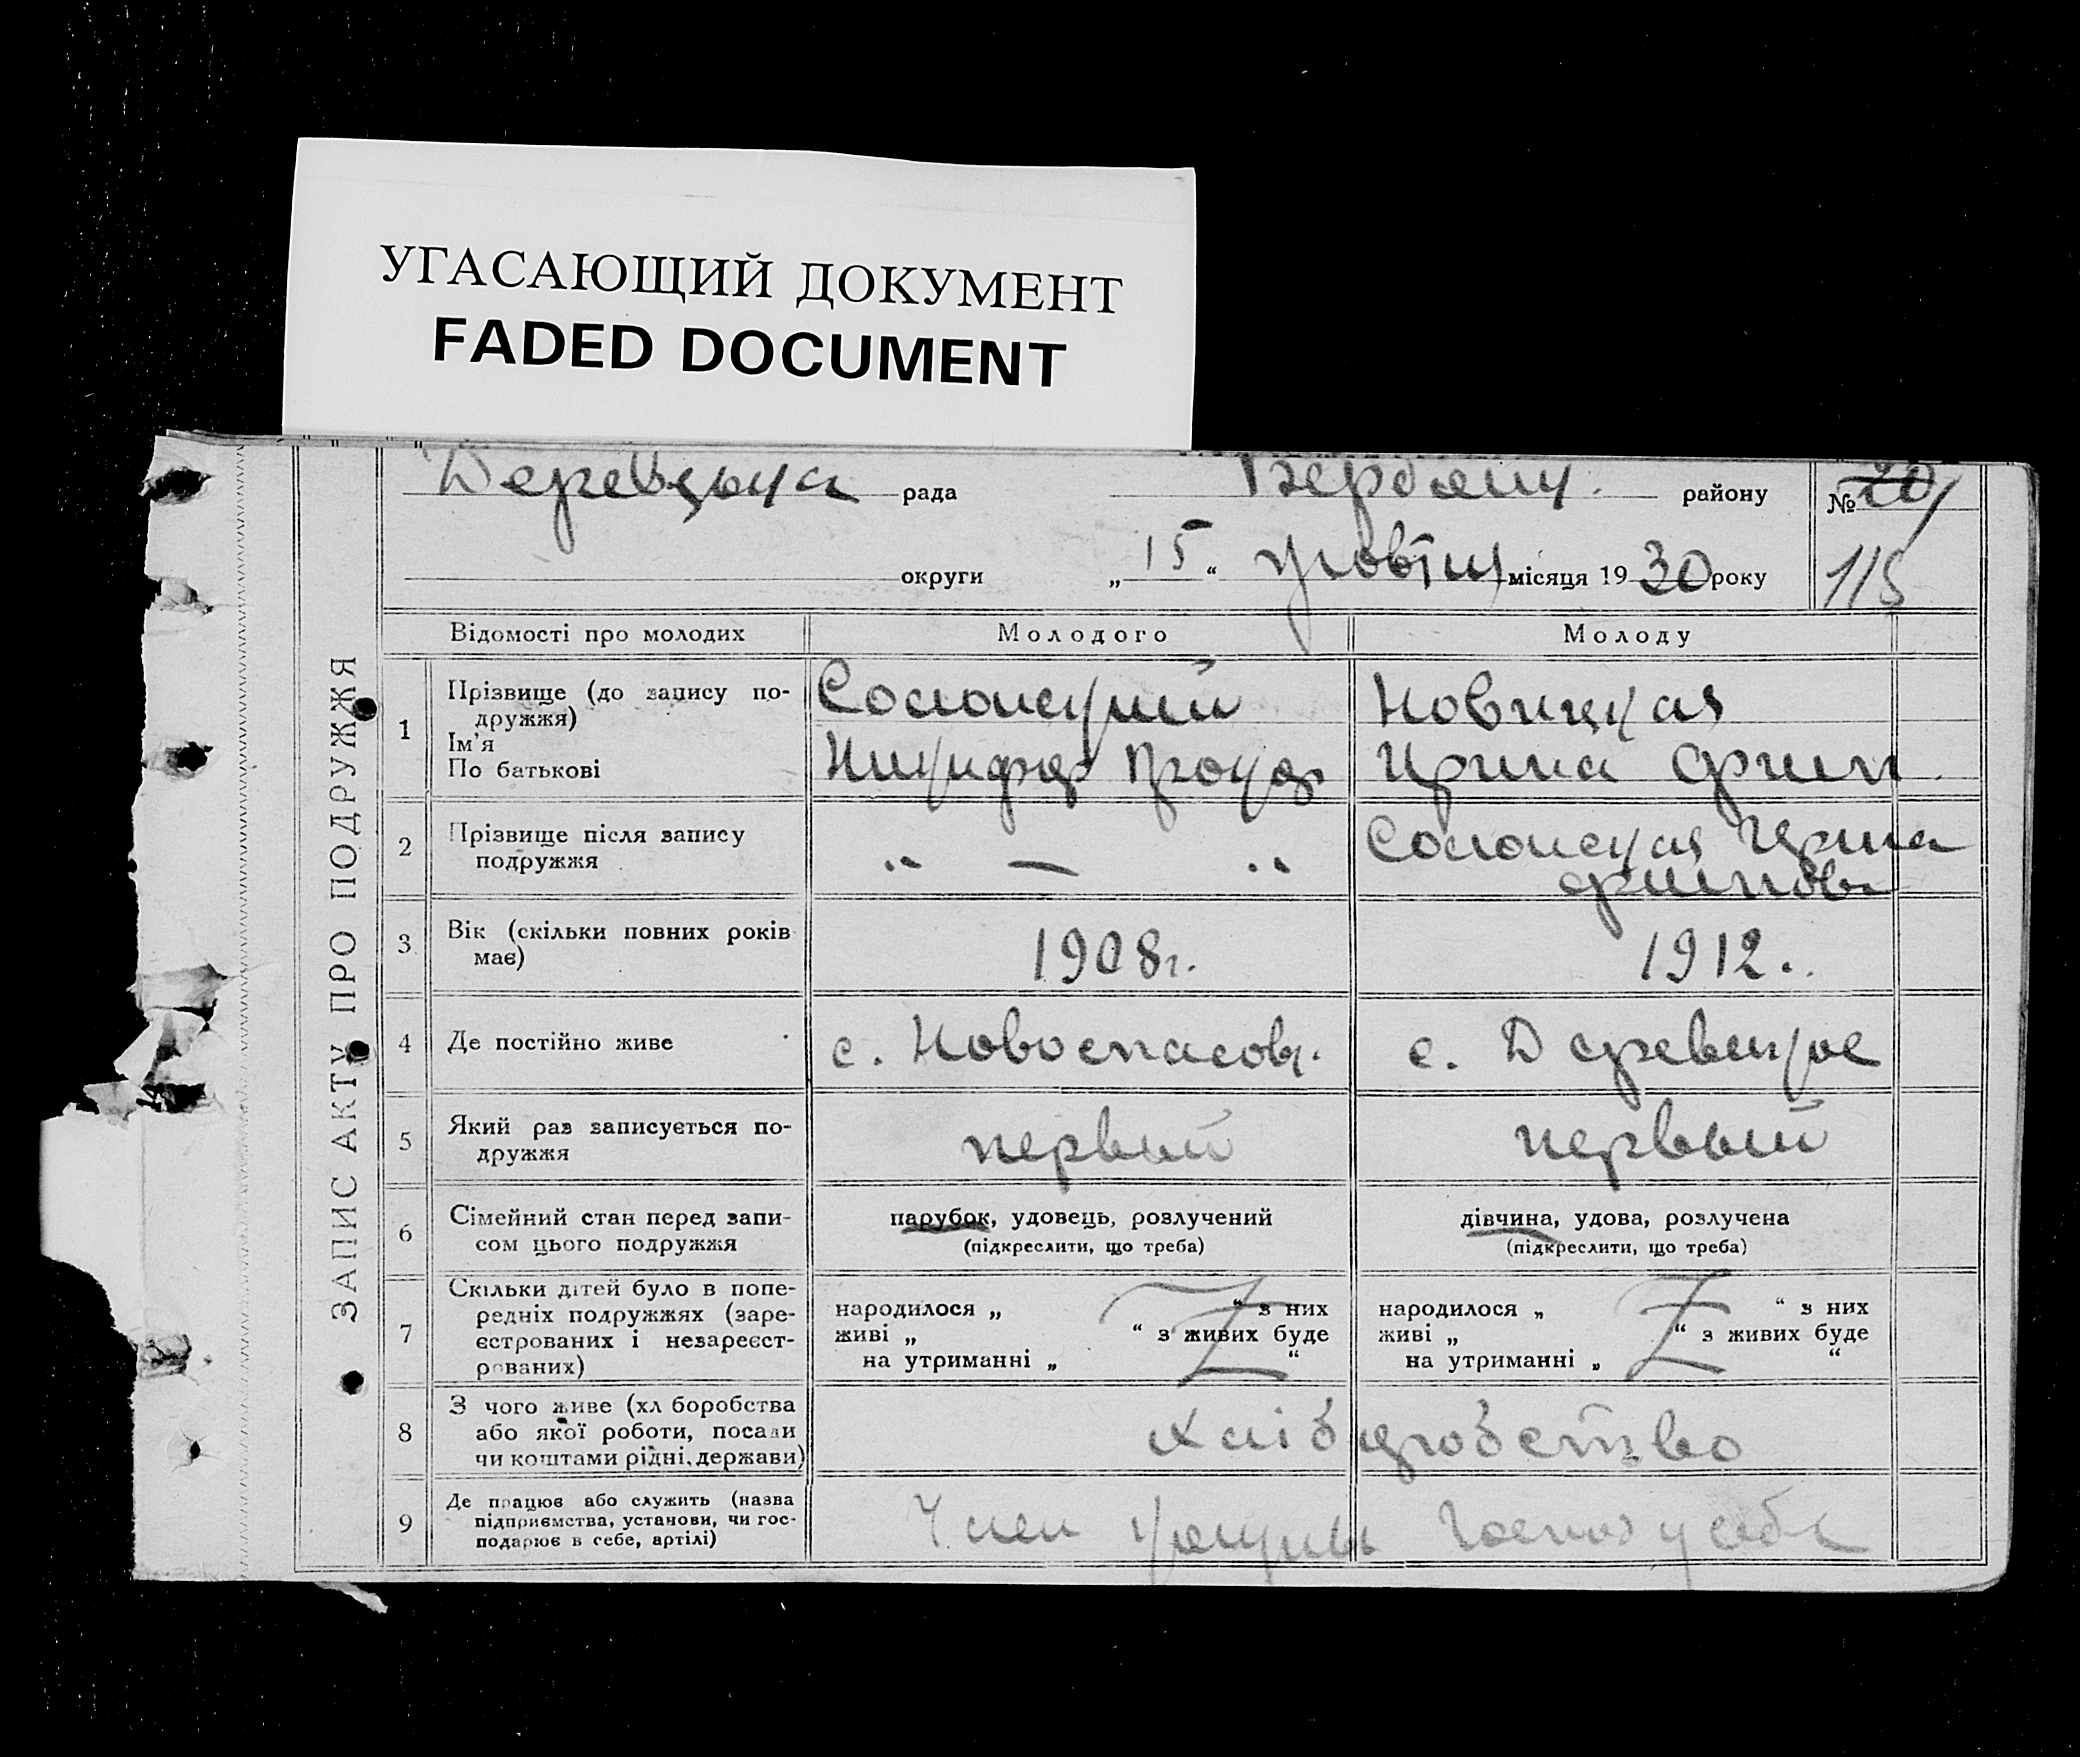 УГАСАЮЩИЙ ДОКУМЕНТ
FADED DOCUMENT
Деревцька рада Бердянск. району № 20
округи „ 15 “ жовтня місяця 19 30 року 115
ЗАПИС АКТУ ПРО ПОДРУЖЖЯ
Відомості про молодих Молодого Молоду
1 Прізвище (до запису по-
дружжя)
Ім’я
По батькові
Солонский
Никифор Прокоф
Новицкая
Ирина Филип
2 Прізвище після запису
подружжя
„ — „
Солонская Ирина
Филипов
3 Вік (скільки повних років
має)
1908 г. 1912..
4 Де постійно живе с. Новоспасовк. с. Деревецкое
5 Який раз записується по-
дружжя
первый первый
6 Сімейний стан перед запи-
сом цього подружжя
парубок, удовець, розлучений
(підкреслити, що треба)
дівчина, удова, розлучена
(підкреслити, що треба)
7 Скільки дітей було в попе-
редніх подружжях (заре-
єстрованих і незареєст-
рованих)
народилося „ “ з них
живі „ “ з живих буде
на утриманні „ “
народилося „ “ з них
живі „ “ з живих буде
на утриманні „ “
8 З чого живе (хл боробства
або якої роботи, посади
чи коштами рідні, держави)
хліборобство
9 Де працює або служить (назва
підприємства, установи, чи гос-
подарює в себе, артілі)
Член